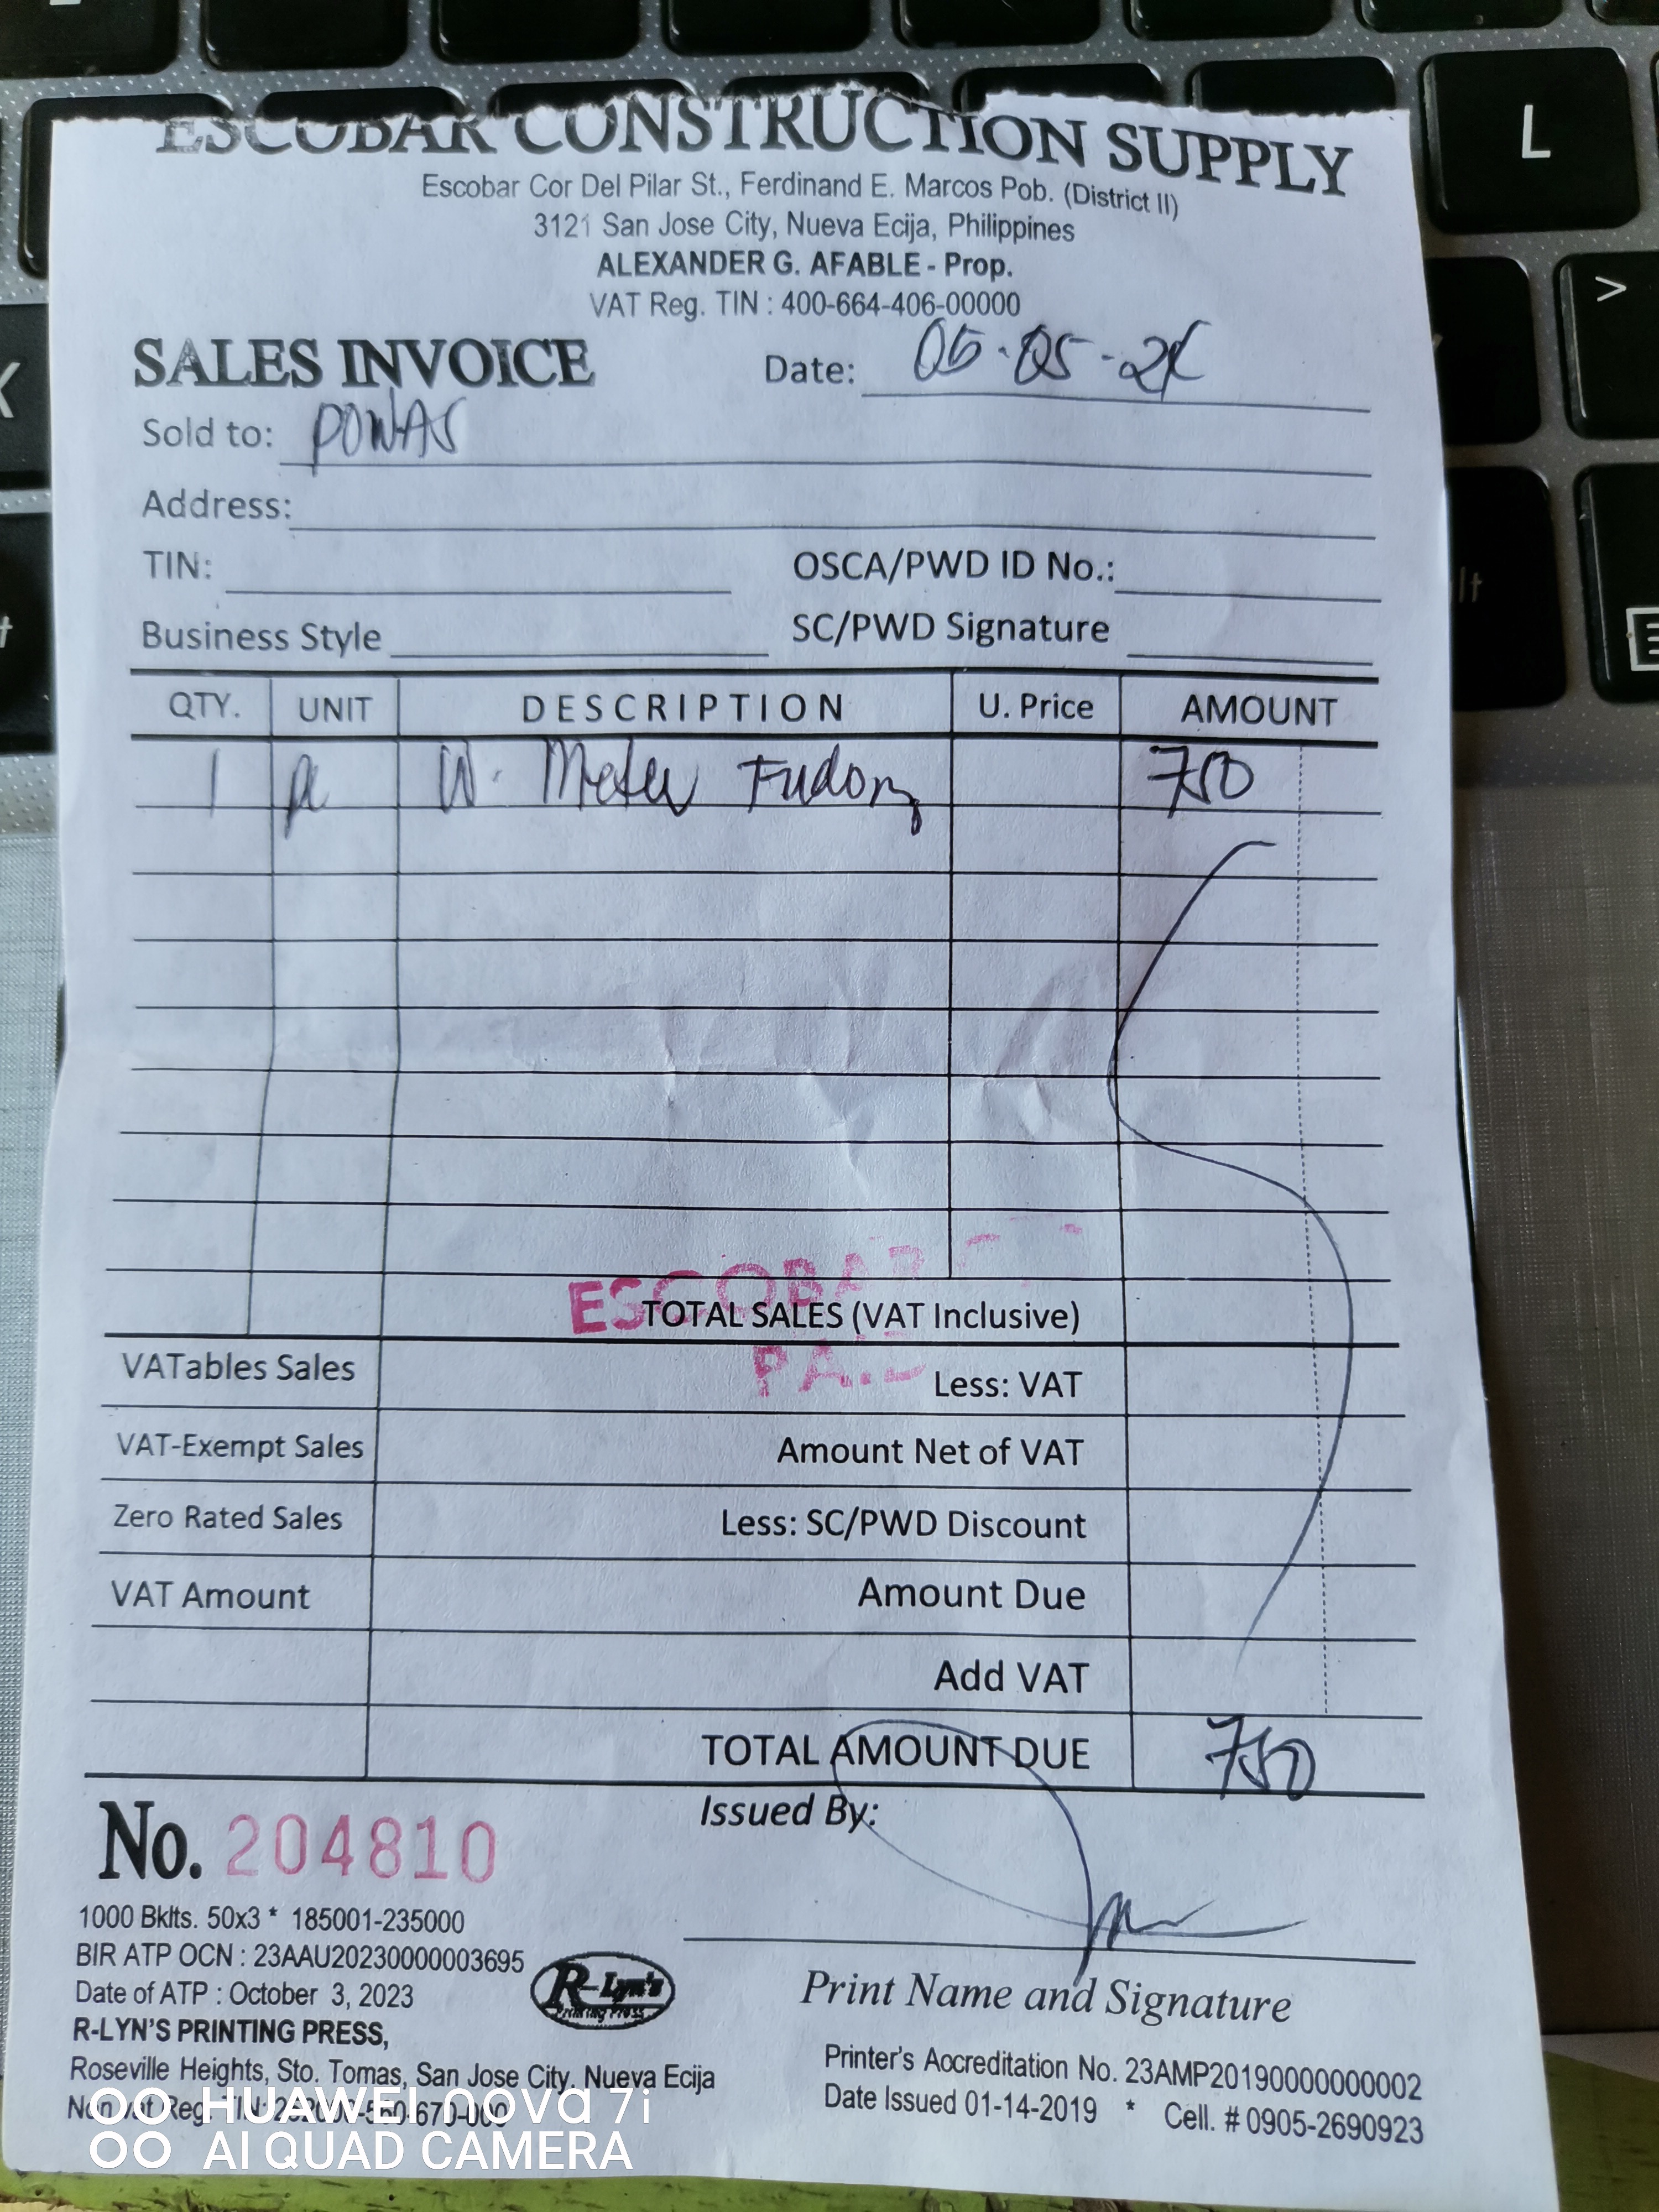 ESCOBAR CONSTRUCTION SUPPLY
Escobar Cor Del Pilar St., Ferdinand E. Marcos Pob. (District II)
3121 San Jose City, Nueva Ecija, Philippines
ALEXANDER G. AFABLE - Prop.
VAT Reg. TIN : 400-664-406-00000
SALES INVOICE Date:
Sold to: POWAS
Address:
TIN: OSCA/PWD ID No.:
Business Style SC/PWD Signature
QTY. UNIT DESCRIPTION U. Price AMOUNT
1 W. Meter 750
ESCOBAR
TOTAL SALES (VAT Inclusive)
PAID
VATables Sales Less: VAT
VAT-Exempt Sales Amount Net of VAT
Zero Rated Sales Less: SC/PWD Discount
VAT Amount Amount Due
Add VAT
TOTAL AMOUNT DUE 750
No. 204810 Issued By:
1000 Bklts. 50x3 * 185001-235000
BIR ATP OCN : 23AAU20230000003695
Date of ATP : October 3, 2023
R-LYN'S PRINTING PRESS,
R-Lyn's
Printing Press
Print Name and Signature
Roseville Heights, Sto. Tomas, San Jose City, Nueva Ecija
Non Vat Reg. TIN:
Printer's Accreditation No. 23AMP20190000000002
Date Issued 01-14-2019 * Cell. # 0905-2690923
HUAWEI nova 7i
AI QUAD CAMERA
L
>